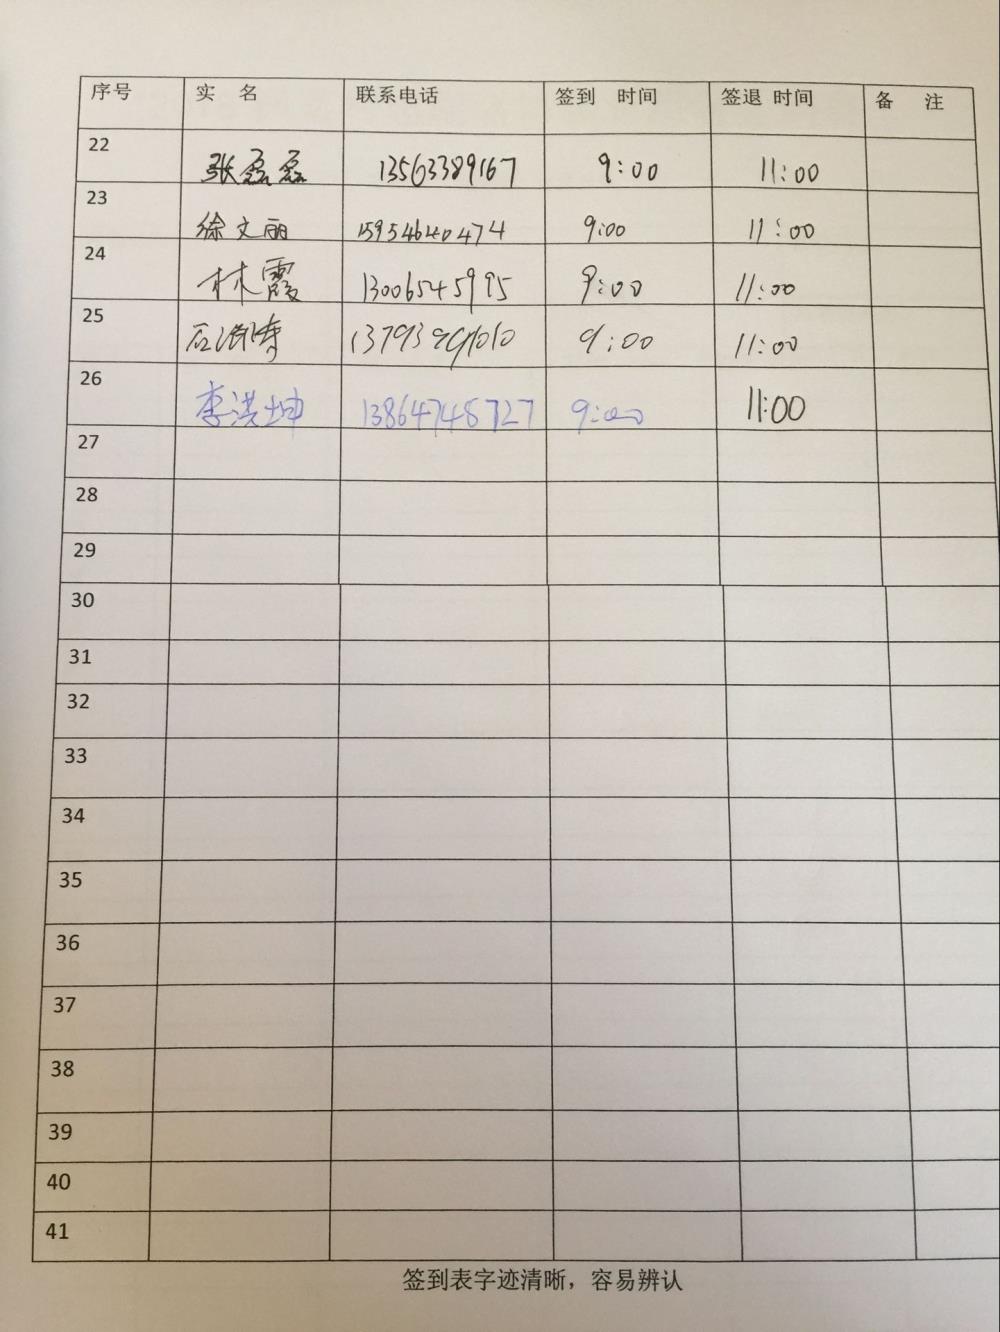 序号 实 名 联系电话 签到 时间 签退 时间 备 注
22 张磊磊 13563389167 9:00 11:00
23 徐文丽 15954640474 9:00 11:00
24 林霞 13006545995 9:00 11:00
25 9:00 11:00
26 李洪坤 13864748727 9:00 11:00
27
28
29
30
31
32
33
34
35
36
37
38
39
40
41
签到表字迹清晰，容易辨认